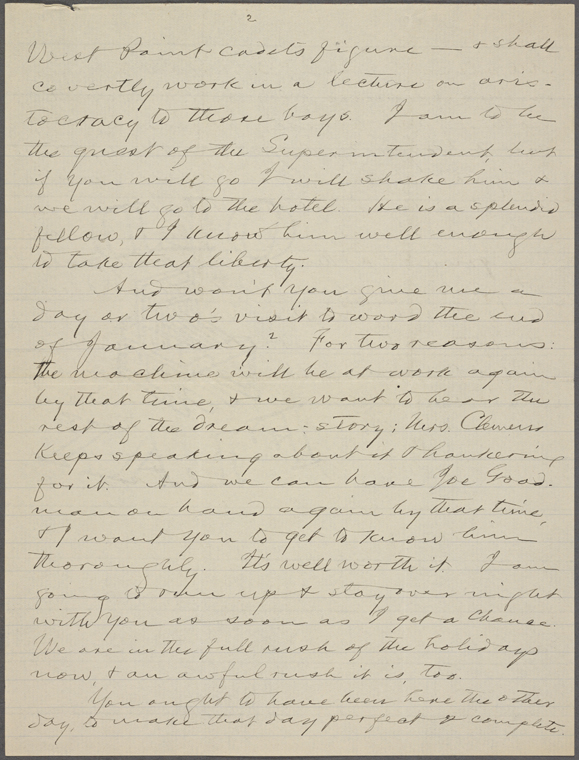 2
West Point cadets figure — & shall
covertly work in a lecture on aris-
tocracy to those boys. I am to be
the guest of the Superintendent, but
if you will go I will shake him &
we will go to the hotel. He is a splendid
fellow, & I know him well enough
to take that liberty.
And won't you give me a
day or two's visit toward the end
of January? For two reasons:
the machine will be at work again
by that time, & we want to hear the
rest of the dream-story; Mrs. Clemens
keeps speaking about it & hankering
for it. And we can have Joe Good-
man on hand again by that time,
& I want you to get to know him
thoroughly. It's well worth it. I am
going to run up & stay over night
with you as soon as I get a chance.
We are in the full rush of the holidays
now, & an awful rush it is, too.
You ought to have been here the other
day, to make that day perfect & complete.